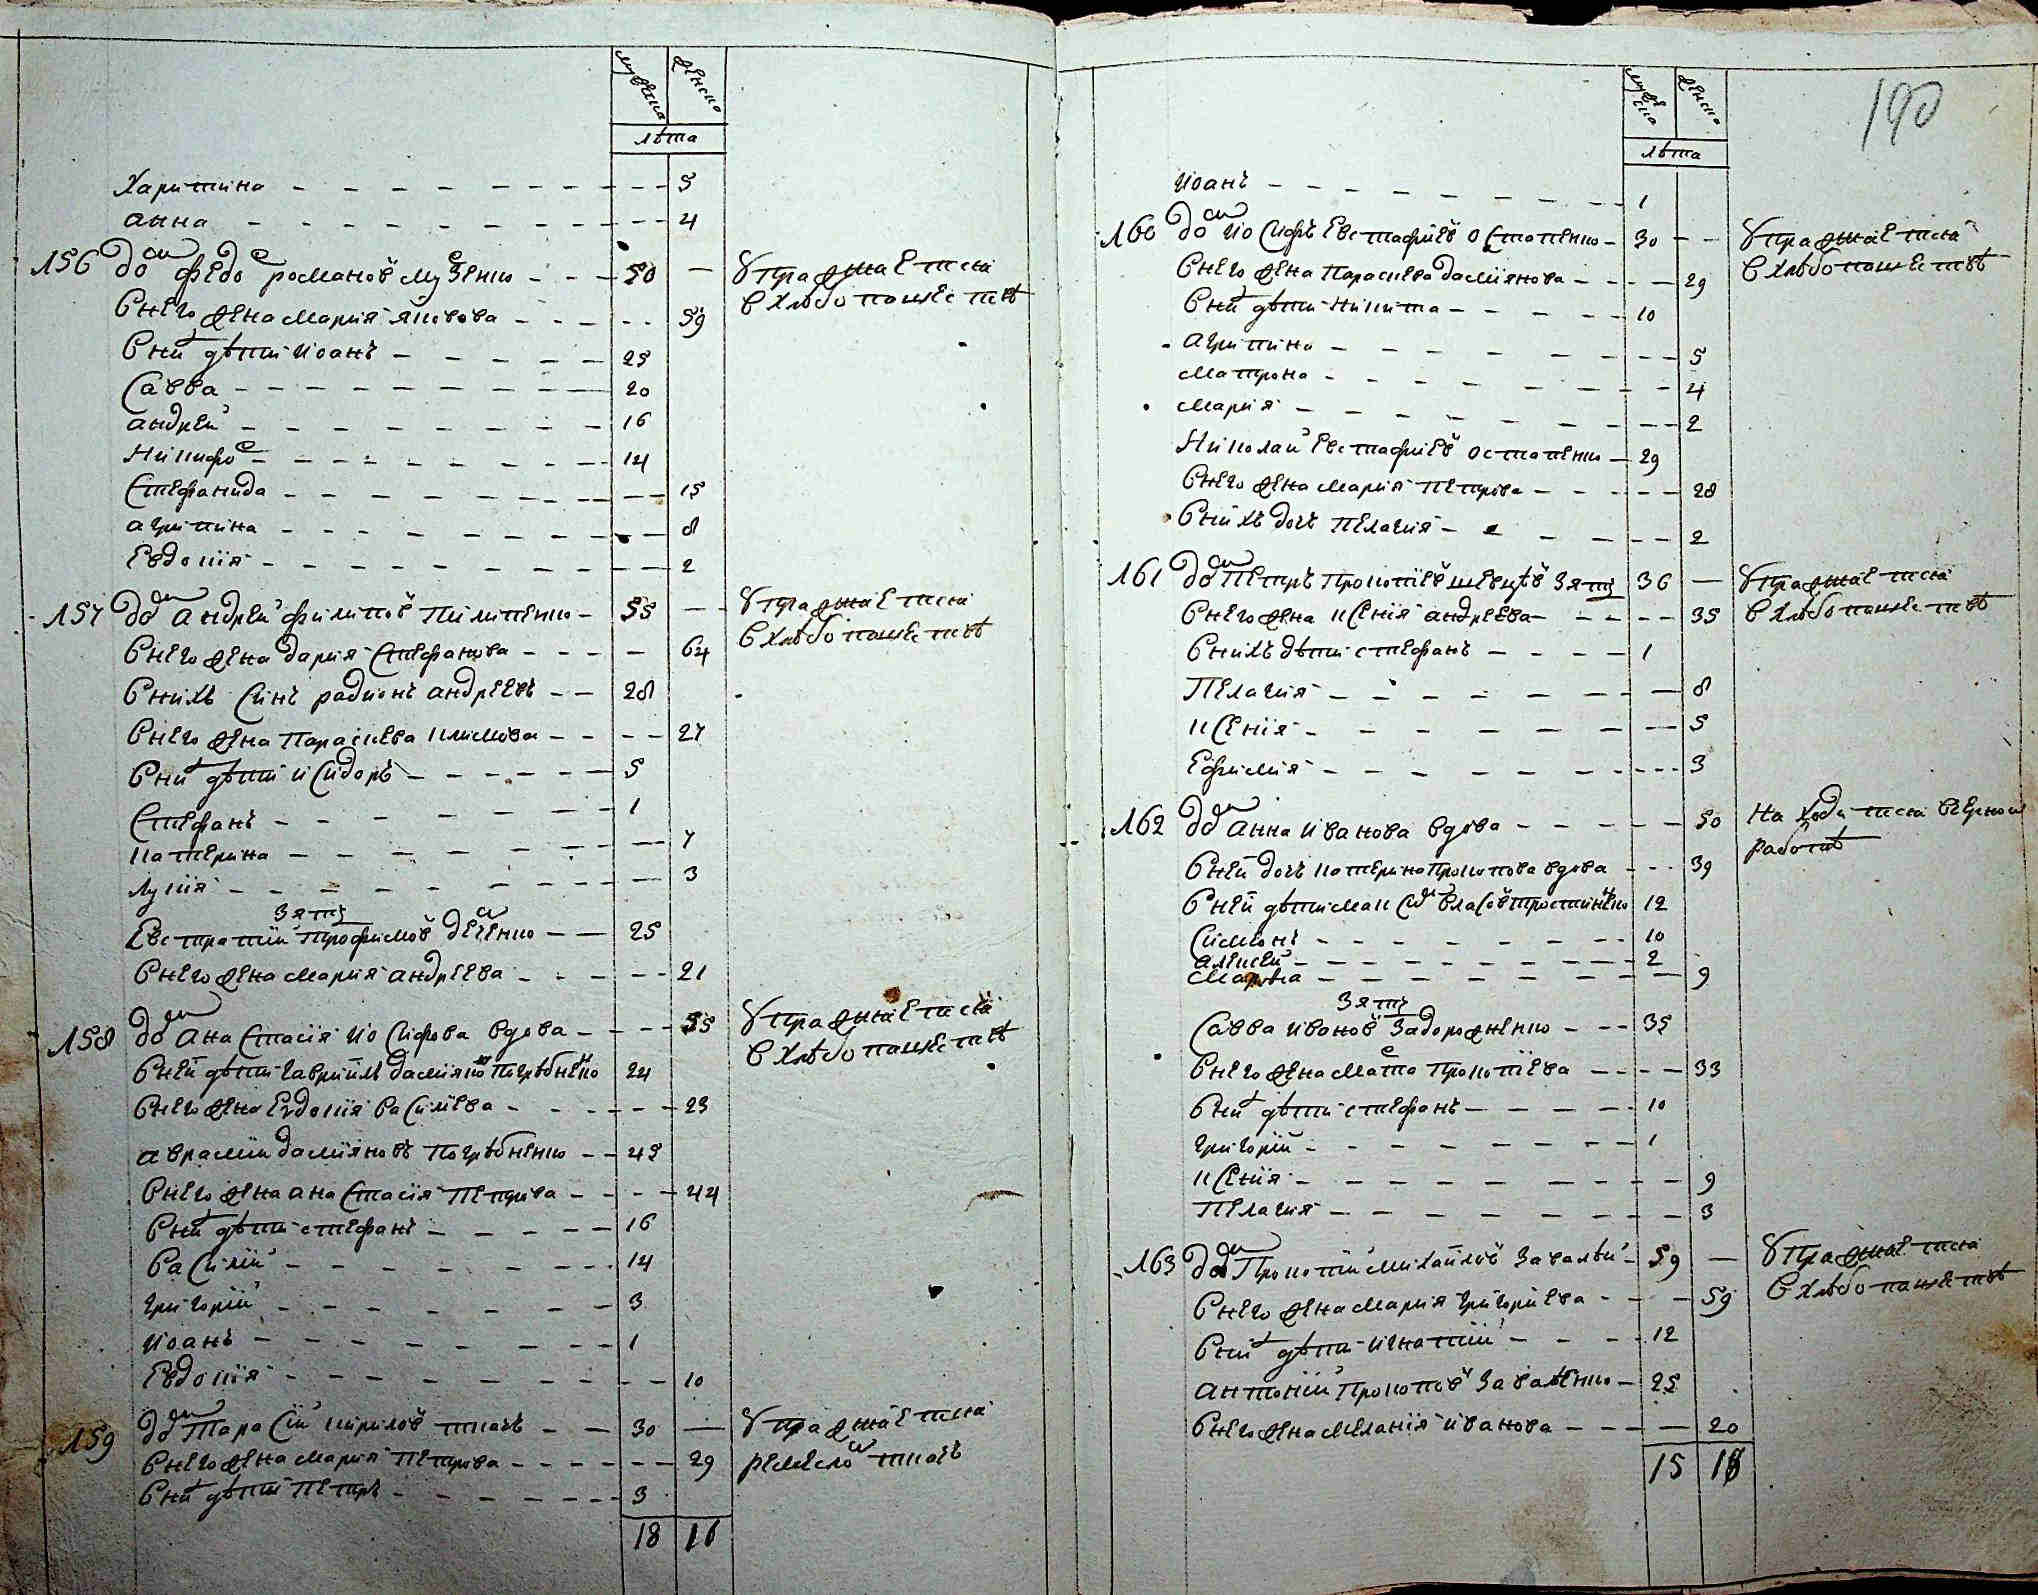 мужеска женско
лѣта
Харитина 5
анна 4
156 до федо романовъ музенко 50 Упражнается
в хлѣбопашествѣ
Снего жена мария яковова 59
С них дѣти иоанъ 25
Савва 20
андрей 16
Никифо 14
Стефанида 15
агрипина 8
Евдокия 2
157 до андрей филиповъ Пилипенко 55 Упражнается
в хлѣбопашествѣ
Снего жена дария Стефанова 64
Снихъ Синъ радионъ андреевъ 28
Снего жена Параскева климова 27
Сних дѣти исидоръ 5
Стефанъ 1
катерина 7
лукия 3
Зять
Евстратий Трофимовъ деченко 25
Снего жена мария андреева 21
158 до анастасия иосифова вдова 55 Упражнается
в хлѣбопашествѣ
Сней дѣти гавриилъ дамиянов Погрѣбнѣко 24
Снего жена Евдокия василева 23
аврамий дамияновъ Погрѣбненко 45
Снего жена анастасия Петрова 44
Сних дѣти стефанъ 16
василий 14
григорий 3
иоанъ 1
Евдокия 10
159 до Тарасий кириловъ ткачъ 30 Упражнается
ремесло ткачъ
Снего жена мария петрова 29
Сних дѣти Петръ 3
18 16
190
мужеско женско
лѣта
иоанъ 1
160 до иосифъ Евстафиевъ остапенко 30 Упражнается
в хлѣбопашествѣ
Снего жена параскева дамиянова 29
Сних дѣти Никита 10
агрипина 5
матрона 4
мария 2
Николай Евстафиевъ остапенко 29
Снего жена мария петрова 28
Снихъ дочъ Пелагия 2
161 до Петръ Прокопиевъ шевцовъ Зять 36 Упражнается
в хлѣбопашествѣ
Снего жена ксения андреева 35
Снихъ дѣти стефанъ 1
Пелагия 8
ксения 5
Ефимия 3
162 до анна иванова вдова 50 Находится вчерной
работѣ
Сней дочъ катерина Прокопова вдова 39
Сней дѣти максі власовъ тростинѣко 12
Симионъ 10
алексей 2
марфа 9
Зять
Савва ивановъ Задорожненко 35
Снего жена мата Прокопиева 33
Сних дѣти стефанъ 10
григорий 1
ксения 9
Пелагия 3
163 до Прокопий михайловъ Завалѣй 59 Упражнается
в хлѣбопашествѣ
Снего жена мария григориева 59
Сних дѣти игнатий 12
антоний Прокоповъ Завалѣнко 25
Снего жена мелания иванова 20
15 18